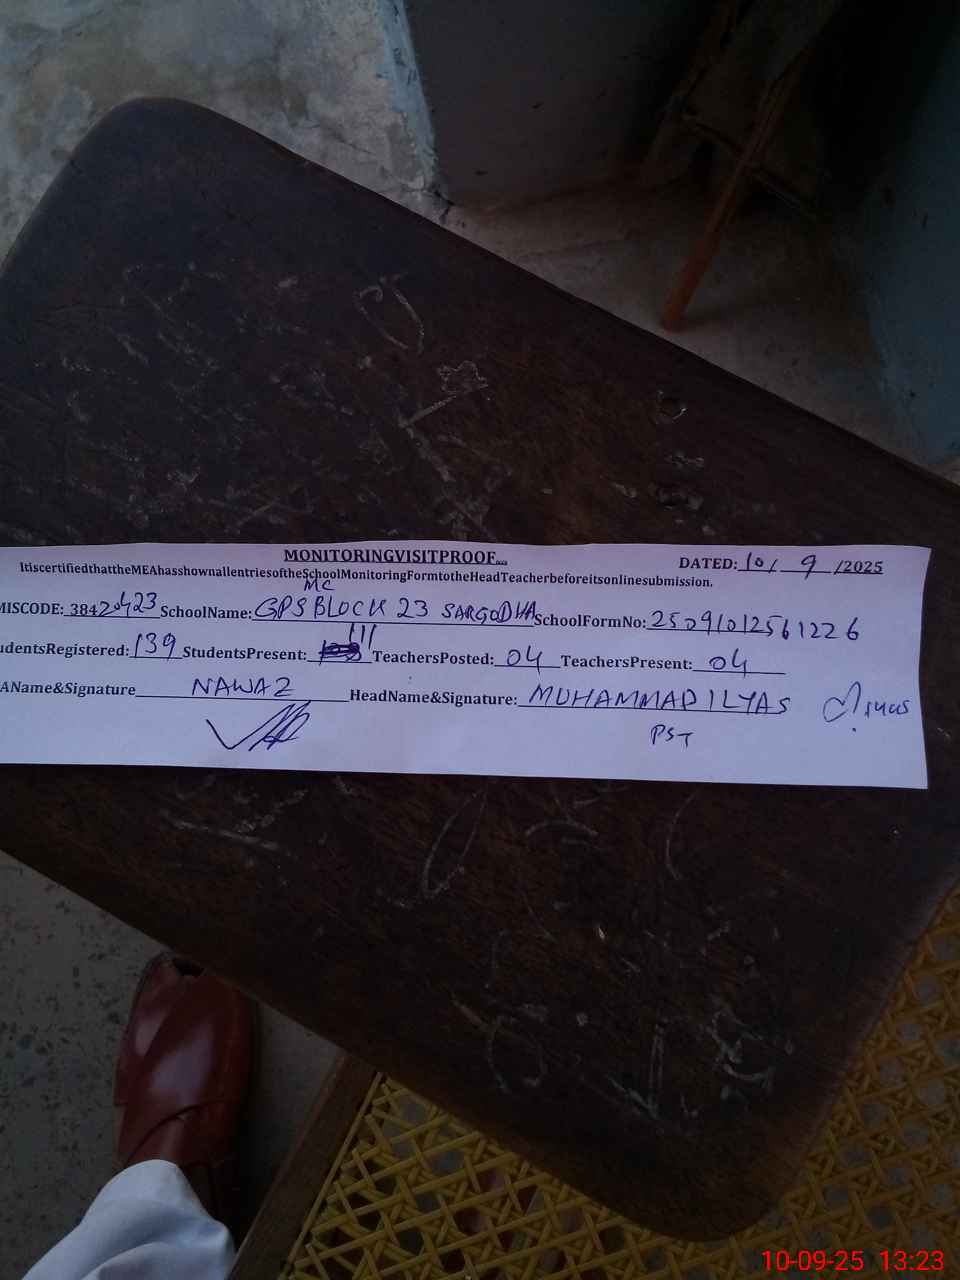 MONITORINGVISITPROOF...
DATED: 10/ 9 /2025
ItiscertifiedthattheMEAhasshownallentriesoftheSchoolMonitoringFormtotheHeadTeacherbeforeitsonlinesubmission.
MC
MISCODE: 38420423 SchoolName: GPS BLOCK 23 SARGODHA SchoolFormNo: 2509101256 1226
111
udentsRegistered: 139 StudentsPresent: TeachersPosted: 04 TeachersPresent: 04
AName&Signature NAWAZ HeadName&Signature: MUHAMMAD ILYAS
PST
10-09-25 13:23